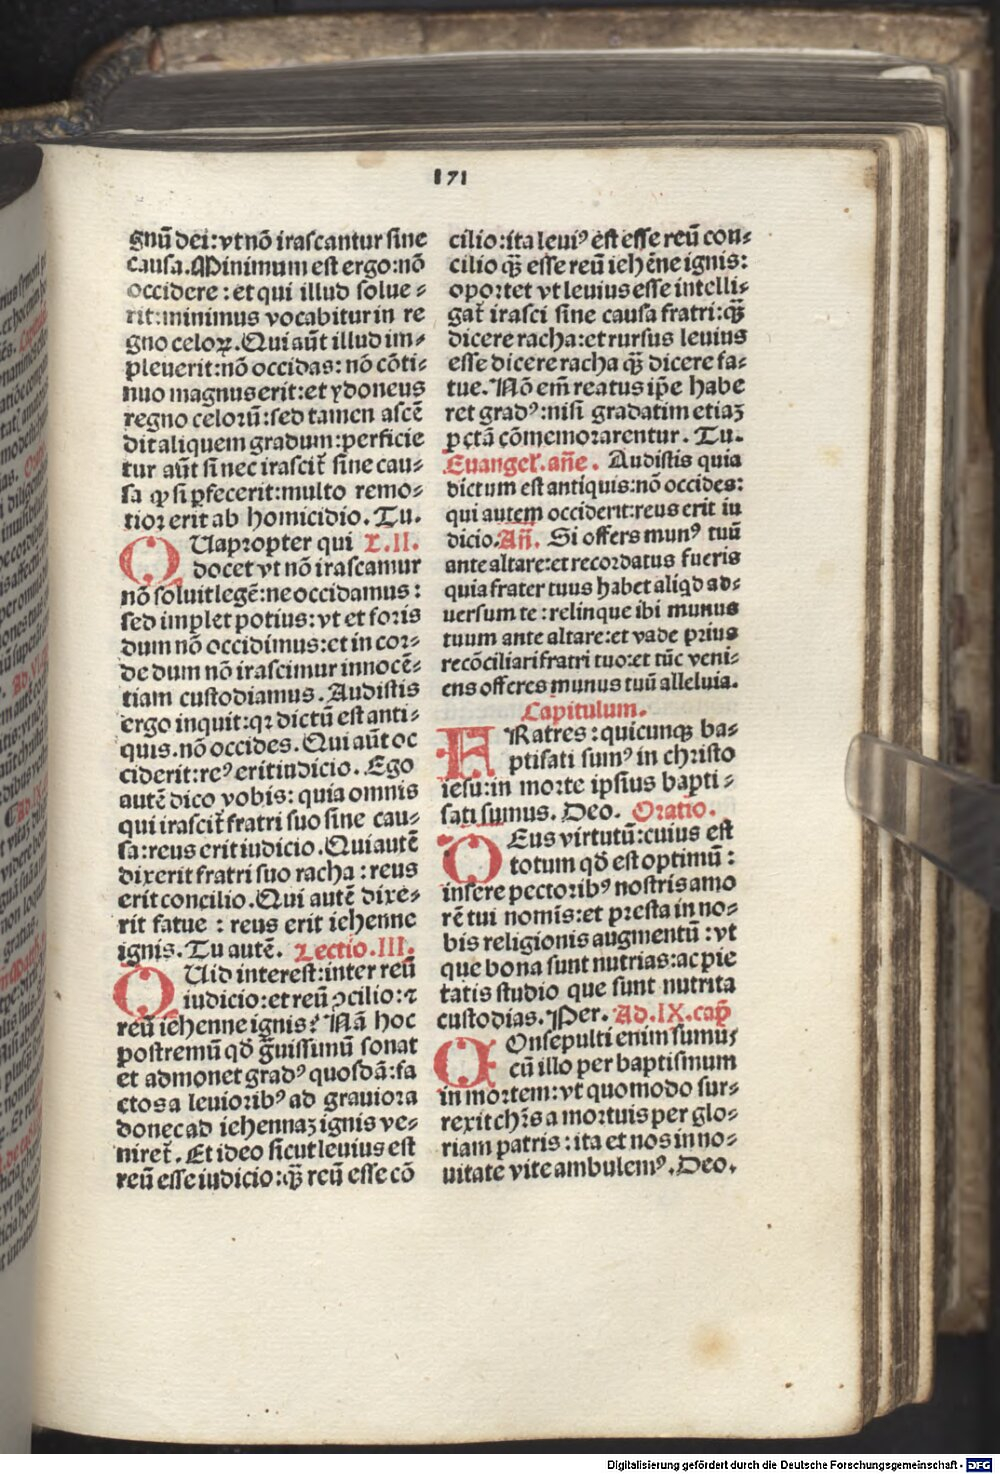 171
gnū dei:vt nō irascantur sine
causa.Minimum est ergo:nō
occidere:et qui illud solue⸗
rit:minimus vocabitur in re
gno celoꝝ.Qui aūt illud im⸗
pleuerit:nō occidas:nō cōti⸗
nuo magnus erit:et ydoneus
regno celorū:sed tamen ascē
dit aliquem gradum:perficie
tur aūt si nec irascit̄ sine cau⸗
sa ꝙ si ꝑfecerit:multo remo⸗
tior erit ab homicidio.Tu.
QUapropter qui L.II.
docet vt nō irascamur
nō soluit legē:ne occidamus:
sed implet potius:vt et foris
dum nō occidimus:et in cor⸗
de dum nō irascimur innocē⸗
tiam custodiamus.Audistis
ergo inquit:qꝛ dictū est anti⸗
quis.nō occides.Qui aūt oc
ciderit:reꝰ erit iudicio.Ego
autē dico vobis:quia omnis
qui irascit̄ fratri suo sine cau⸗
sa:reus erit iudicio.Qui autē
dixerit fratri suo racha:reus
erit concilio.Qui autē dixe⸗
rit fatue:reus erit iehenne
ignis.Tu autē. Lectio.III.
QUid interest:inter reū
iudicio:et reū ꝯcilio:⁊
reū iehenne ignis? Nā hoc
postremū qđ g̃uissimū sonat
et admonet gradꝰ quosdā:fa
ctos a leuioribꝰ ad grauiora
donec ad iehennaꝫ ignis ve⸗
niret̄.Et ideo sicut leuius est
reū esse iudicio:qꝫ̄ reū esse cō
cilio:ita leuiꝰ est esse reū con⸗
cilio qꝫ̄ esse reū iehēne ignis:
oportet vt leuius esse intelli⸗
gat̄ irasci sine causa fratri:qꝫ̄
dicere racha:et rursus leuius
esse dicere racha qꝫ̄ dicere fa⸗
tue.Nō em̄ reatus ip̄e habe
ret gradꝰ:nisi gradatim etiaꝫ
pctā cōmemorarentur.Tu.
Euangel̄.añe. Audistis quia
dictum est antiquis:nō occides:
qui autem occiderit:reus erit iu
dicio.Añ. Si offers munꝰ tuū
ante altare:et recordatus fueris
quia frater tuus habet aliqd ad⸗
uersum te:relinque ibi munus
tuum ante altare:et vade prius
recōciliari fratri tuo:et tūc veni⸗
ens offeres munus tuū alleluia.
Capitulum.
FRatres:quicunqꝫ ba⸗
ptisati sumꝰ in christo
iesu:in morte ipsius bapti⸗
sati sumus.Deo. Oratio.
DEus virtutū:cuius est
totum qđ est optimū:
insere pectoribꝰ nostris amo
rē tui nomis:et presta in no⸗
bis religionis augmentū:vt
que bona sunt nutrias:ac pie
tatis studio que sunt nutrita
custodias.Per. Ad.IX.cap̄
COnsepulti enim sumuꝫ
cū illo per baptismum
in mortem:vt quomodo sur⸗
rexit chr̄s a mortuis per glo⸗
riam patris:ita et nos in no⸗
uitate vite ambulemꝰ.Deo.
Digitalisierung gefördert durch die Deutsche Forschungsgemeinschaft - DFG